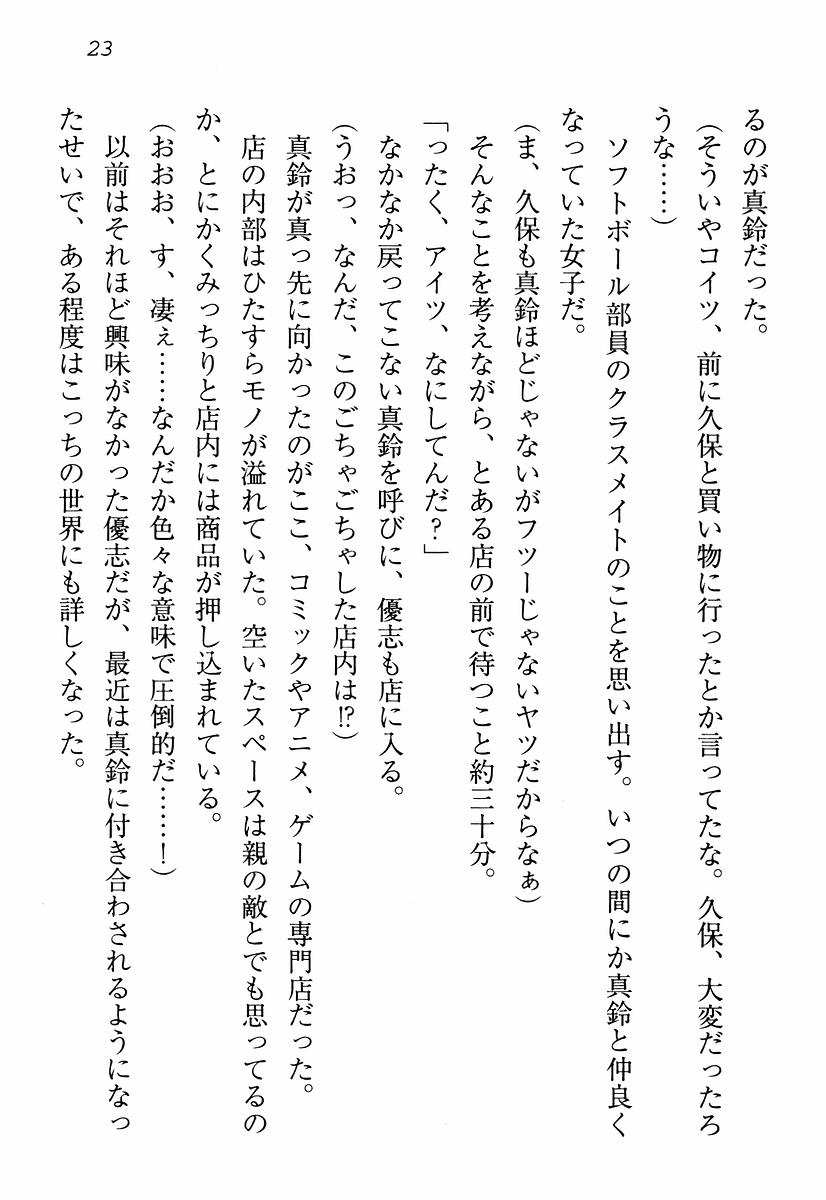 23
るのが真鈴だった。
（そういやコイツ、前に久保と買い物に行ったとか言ってたな。久保、大変だったろ
うな……）
ソフトボール部員のクラスメイトのことを思い出す。いつの間にか真鈴と仲良く
なっていた女子だ。
（ま、久保も真鈴ほどじゃないがフツーじゃないヤツだからなぁ）
そんなことを考えながら、とある店の前で待つこと約三十分。
「ったく、アイツ、なにしてんだ？」
なかなか戻ってこない真鈴を呼びに、優志も店に入る。
（うおっ、なんだ、このごちゃごちゃした店内は!?）
真鈴が真っ先に向かったのがここ、コミックやアニメ、ゲームの専門店だった。
店の内部はひたすらモノが溢れていた。空いたスペースは親の敵とでも思ってるの
か、とにかくみっちりと店内には商品が押し込まれている。
（おおお、す、凄ぇ……なんだか色々な意味で圧倒的だ……！）
以前はそれほど興味がなかった優志だが、最近は真鈴に付き合わされるようになっ
たせいで、ある程度はこっちの世界にも詳しくなった。